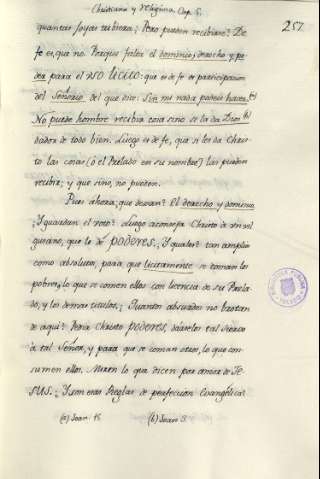 Christiana y Religiosa. Cap. 5.
257
quantas soyas tubiera; Pero pueden recibirse? De
fe es, que no. Porque faltar el dominio, derecho y po-
der para el uso licito: que es de fe es participacion
del Señorio del que dixo: Sin mi nada podeis hacer (a)
No puede hombre recibir cosa sino se la da Dios (b)
dador de todo bien. Luego es de fe, que si les da Chris-
to las cosas (ó el Prelado en su nombre) las pueden
recibir; y que sino, no pueden.
Pues ahora; que desean? El derecho y dominio
¿Y guardan el voto? Luego aconseja Christo
que le de poderes. ¿Y quales? tan amplios
como absolutos, para que licitamente se coman los
pobres, lo que se comen ellos con licencia de su Prela-
do, y los demas titulos. ¿Quantos absurdos no brotan
de aqui? Pedir Christo poderes, dairselos tal siervo
á tal Señor, y para que se coman otros, lo que con-
sumen ellos. Miren lo que dicen por amor de JE-
SUS. ¿Y son esas Reglas de perfeccion Evangelica
(a) Joan. 15. (b) Joan. 3.
BIBLIOTECA PUBLICA
TOLEDO